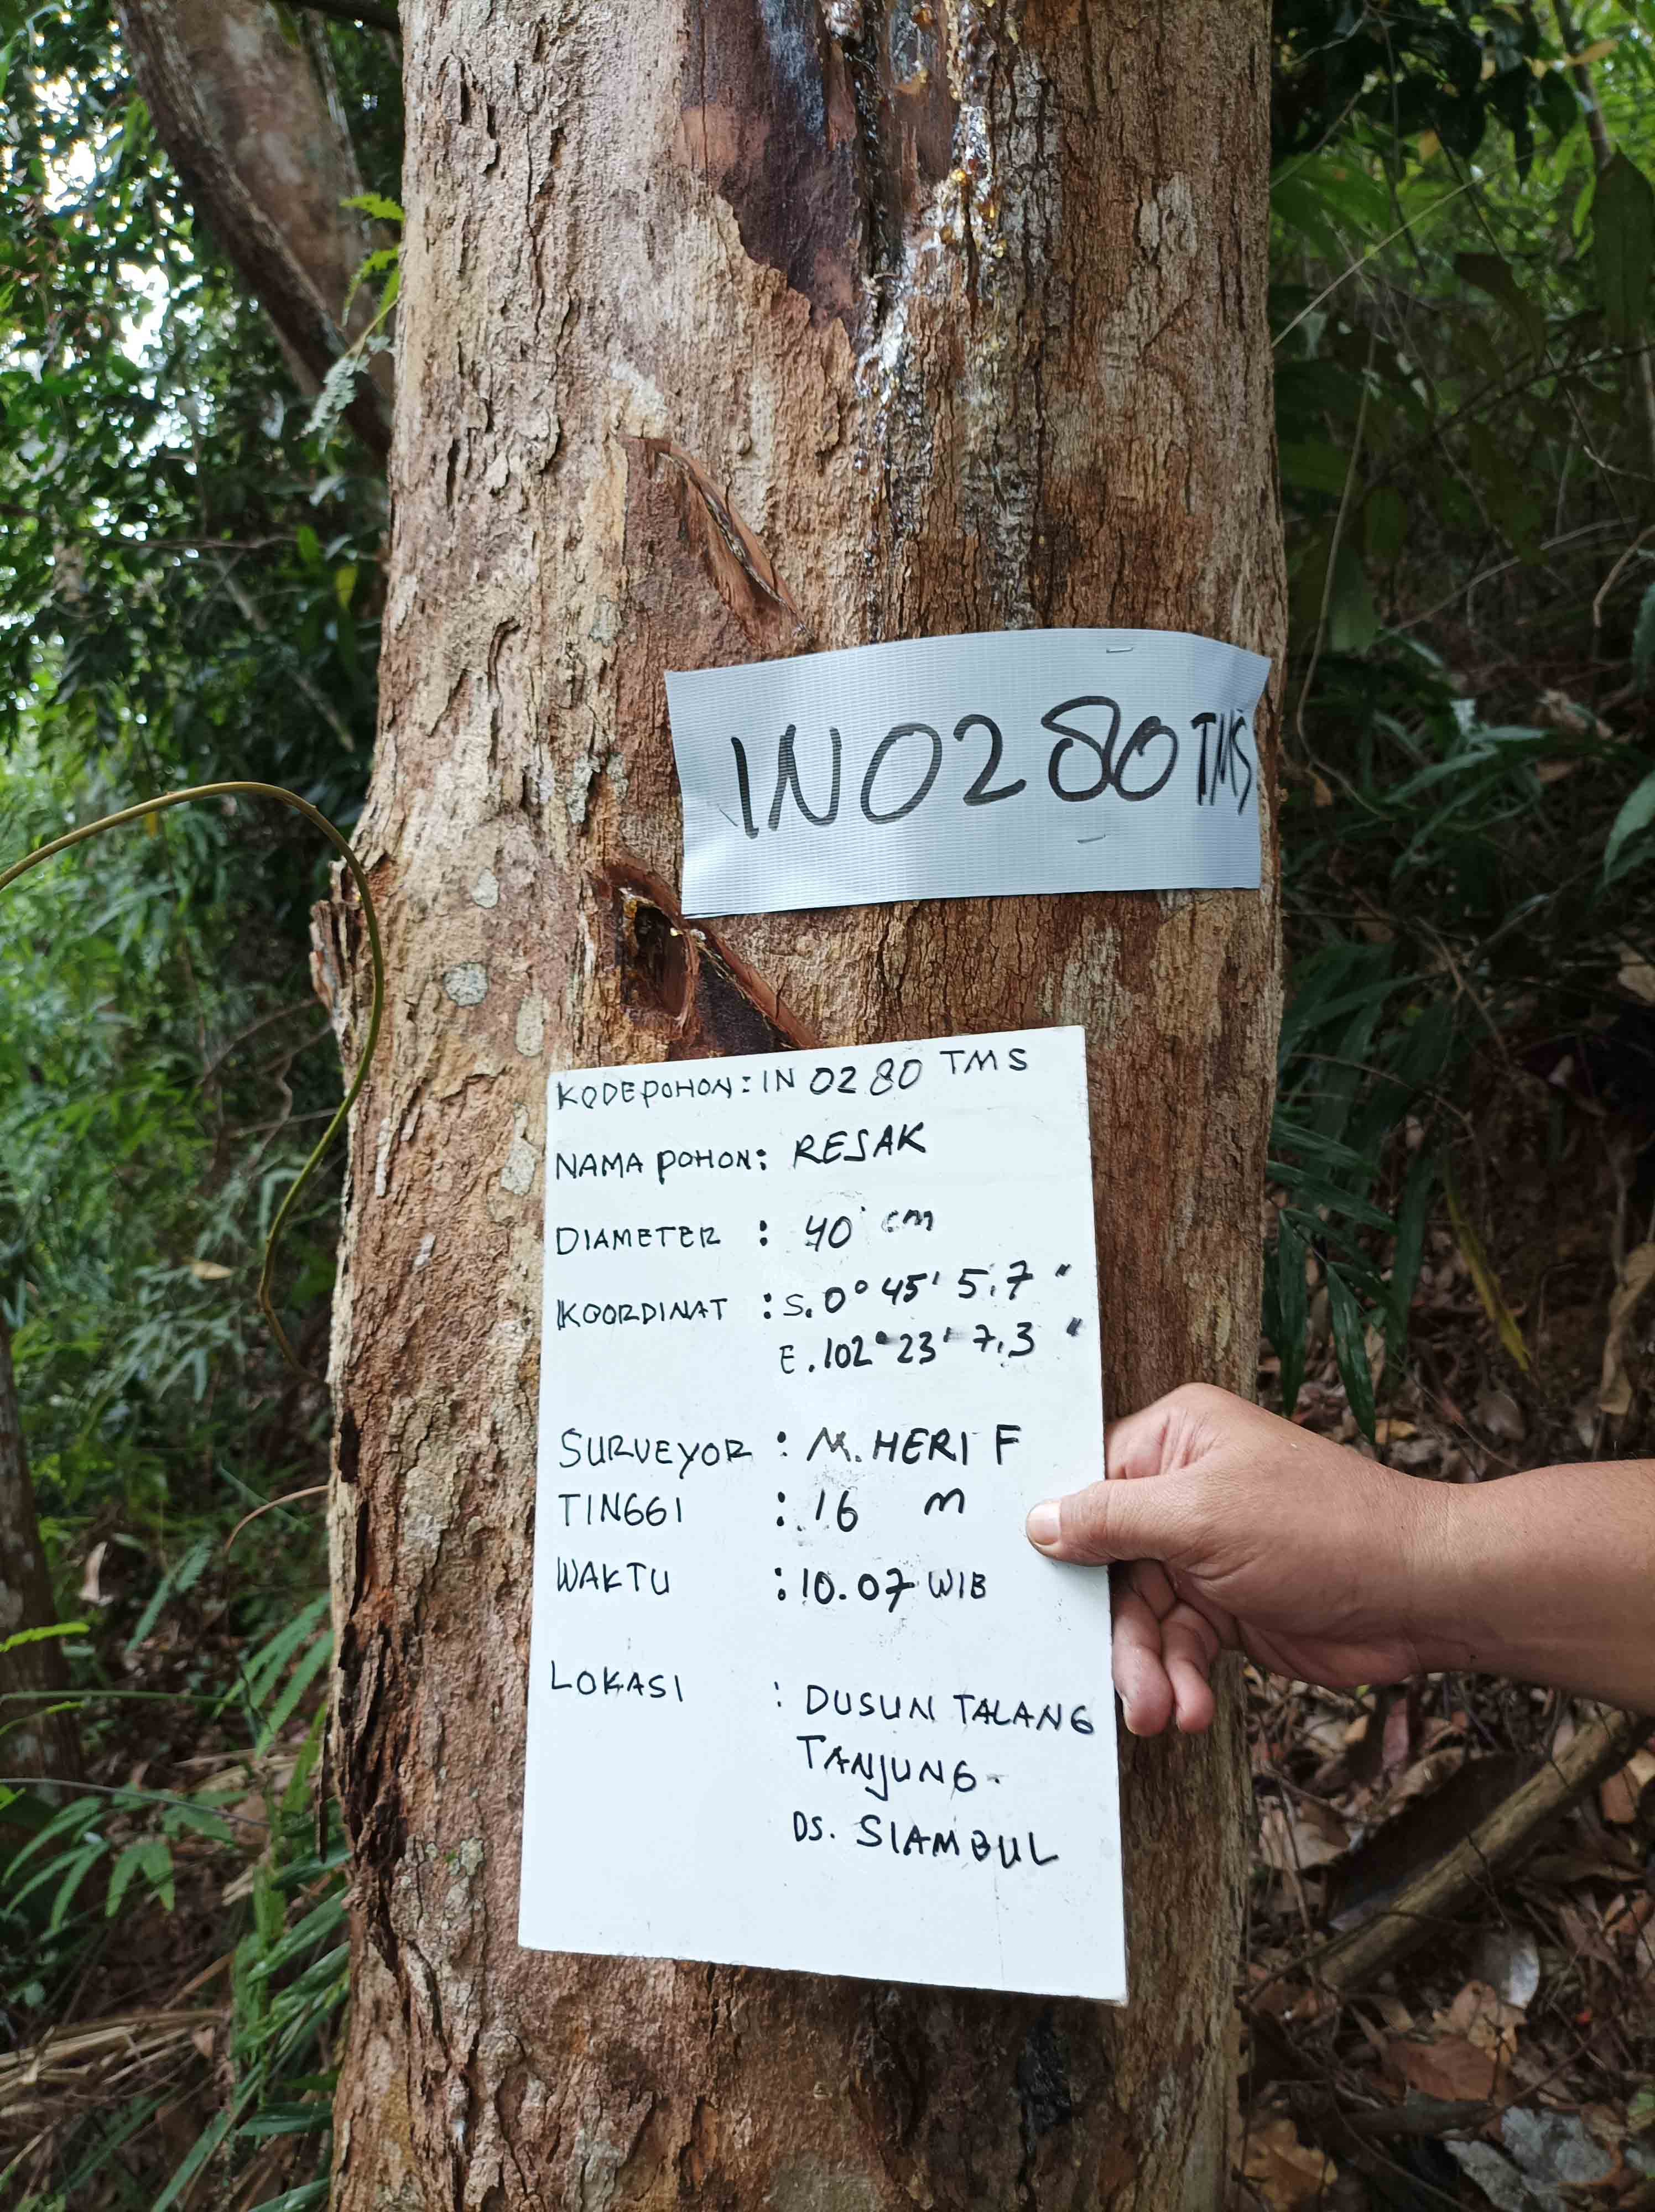 IN0280 TMS
KODE POHON : IN 0280 TMS
NAMA POHON : RESAK
DIAMETER : 40 cm
KOORDINAT : S. 0° 45' 5.7"
E. 102° 23' 7,3"
SURVEYOR : M. HERI F
TINGGI : 16 m
WAKTU : 10.07 WIB
LOKASI : DUSUN TALANG
TANJUNG.
DS. SIAMBUL